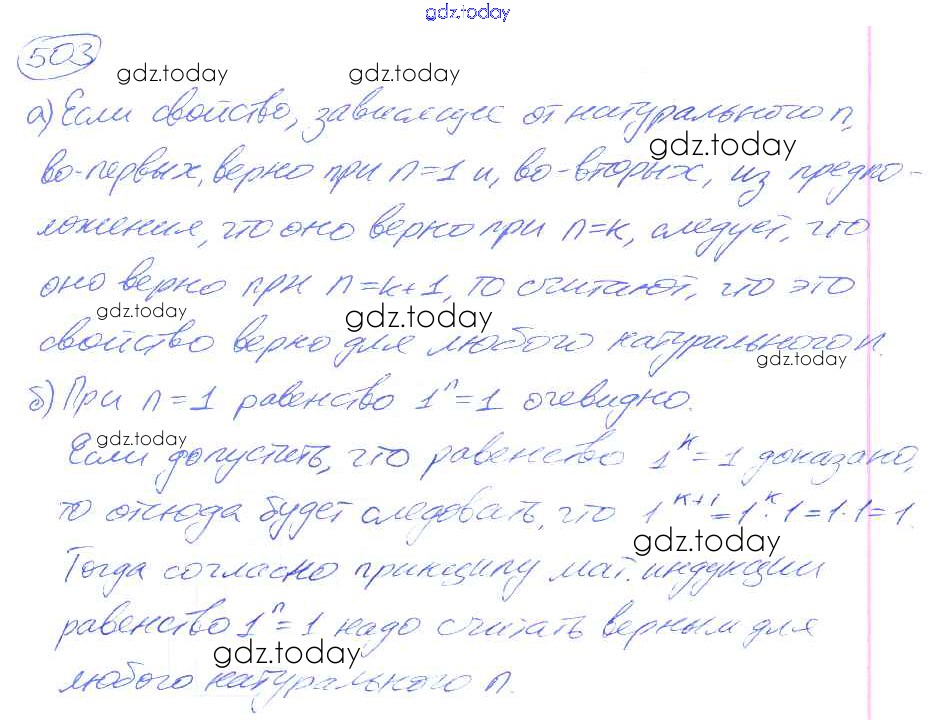 gdz.today
503
gdz.today gdz.today
а) Если свойство, зависящее от натурального n,
gdz.today
во-первых, верно при n=1 и, во-вторых, из предпо-
ложения, что оно верно при n=k, следует, что
оно верно при n=k+1, то считают, что это
gdz.today gdz.today
свойство верно для любого натурального n.
gdz.today
б) При n=1 равенство 1ⁿ=1 очевидно.
gdz.today
Если допустить, что равенство 1ᵏ=1 доказано,
то отсюда будет следовать, что 1ᵏ⁺¹=1ᵏ·1=1·1=1.
gdz.today
Тогда согласно принципу мат. индукции
равенство 1ⁿ=1 надо считать верным для
gdz.today
любого натурального n.